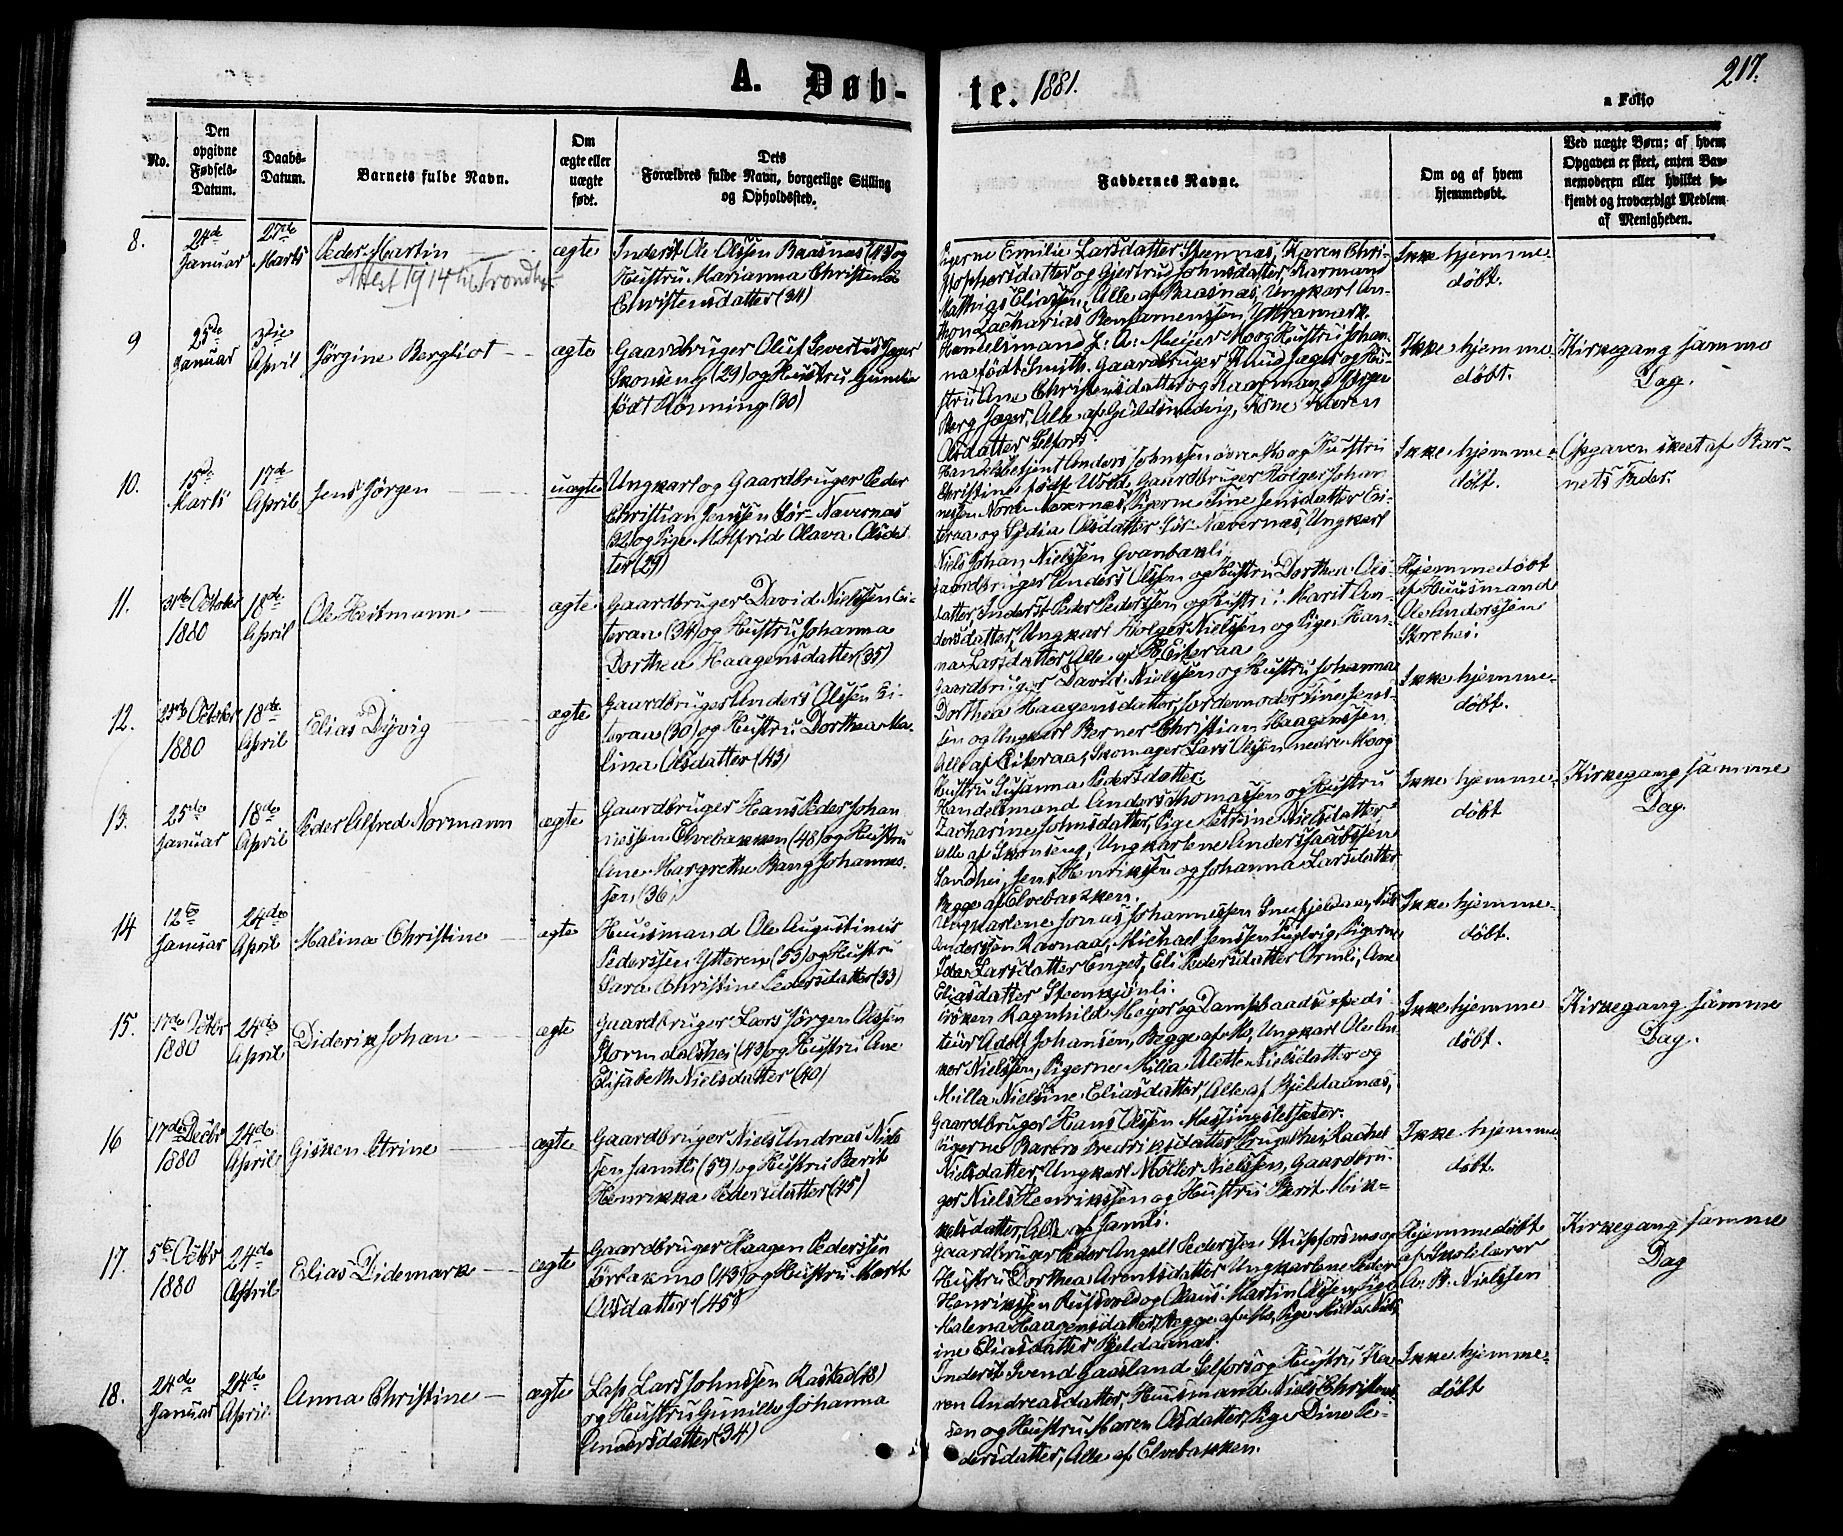 A. Døb-
te. 1881.
217.
a Folio
No.
Den opgivne Fødsels-Datum.
Daabs-Datum.
Barnets fulde Navn.
Om ægte eller uægte født.
Dets Forældres fulde Navn, borgerlige Stilling og Opholdssted.
Faddernes Navne.
Om og af hvem hjemmedøbt.
Ved uægte Børn; af hvem Opgaven er skeet, enten Barnemoderen eller hvilket bekjendt og troværdigt Medlem af Menigheden.
8.
24de Januar
27de Marts
Peder Martin
Attest 1914 til Trondhj.
ægte
Inderst Ole Olssen Baasnæs (43) og
Hustru Marianna Christense
Christensdatter (34)
Pigerne Emilie Larsdatter Stennæs, Karen Chri-
stophersdatter og Gjertrud Johnsdatter, Kaarmand
Mathias Eliassen, Alle af Baasnæs, Ungkarl An-
thon Zacharias Benjamenssen Yttramark.
Ikke hjemme-
døbt.
9
25de Januar
3die April
Jørgine Bergliot
ægte
Gaardbruger Oluf Severtus Jæger
Skonseng (29) og Hustru Gunelie
født Rønning (30)
Handelsmand L. A. Meijer Mo og Hustru Johan-
na født Smith. Gaardbruger Knud Jæger og Hu-
stru Ane Christensdatter og Kaarmand Jørgen
Berg Jæger, Alle af Guldsmedvig, Kone Karen
Olsdatter Selfors.
Ikke hjemme-
døbt.
Kirkegang samme
Dag.
10.
15de Marts
17de April
Jens Jørgen
uægte
Ungkarl og Gaardbruger Peder
Christian Jenssen Sør-Nævernæs
(32) og Pige Malfrid Olava Olsdat-
ter (29)
Handelsbetjent Anders Johnssen øvre Mo og Hustru
Christine født Wold, Gaardbruger Holger Johan
nessen Nord-Nævernæs, Pigerne Sine Jensdatter Ei-
teraa og Lydia Olsdatter Sør-Nævernæs, Ungkarl
Niels Johan Nielssen Gvanbakli.
Ikke hjemme-
døbt.
Opgaven skeet af Bar-
nets Fader.
11.
31te October 1880
18de April
Ole Heitmann
ægte
Gaardbruger David Nielssen Ei-
teraa (34) og Hustru Johanna
Dorthea Haagensdatter (35)
Gaardbruger Anders Olssen og Hustru Dorthea Ols-
datter, Inderst Peder Pederssen og Hustru Marit An-
dersdatter, Ungkarl Holger Nielssen og Pige Han-
na Larsdatter, Alle af Eiteraa
Hjemmedøbt
af Huusmand
Ole Anderssen
Storehei.
12.
23de October 1880
18de April
Elias Dÿvig
ægte
Gaardbruger Anders Olssen Ei-
teraa (30) og Hustru Dorthea Ma-
lina Olsdatter (43)
Gaardbruger David Nielssen og Hustru Johanna
Dorthea Haagensdatter, Jordemoder Tine Jens-
sen og Ungkarl Berner Christian Haagenssen
Alle af Eiteraa, Skomager Lars Olssen nedre Mo og
Hustru Susanna Pedersdatter.
Ikke hjemme-
døbt.
13.
25de Januar
18de April
Peder Alfred Normann
ægte
Gaardbruger Hans Peder Johan
nessen Elvebakken (48) og Hustru
Ane Margrethe Bang Johannes-
sen (36)
Handelsmand Anders Thomassen og Hustru
Zacharine Johnsdatter, Pige Petrine Nielsdatter
Alle af Skonseng, Ungkarlene Anders Jacobssen
Sandhei, Jens Henrikssen og Johanna Larsdatter
Begge af Elvebakken.
Ikke hjemme-
døbt
Kirkegang samme
Dag.
14
12te Januar
24de April
Malina Christine
ægte
Huusmand Ole Augustinus
Pederssen Ytteren (55) og Hustru
Sara Christine Pedersdatter (33)
Ungkarlene Jonas Johannessen Snefjeldaa, Niels
Anderssen Ravnaa, Michael Jenssen Fuglvig, Pigerne
Ida Larsdatter Enget, Eli Pedersdatter Ormli, Ane
Eliasdatter Steenkjønli.
Ikke hjemme-
døbt.
15.
17de Octbr 1880
24de April
Diderik Johan
ægte
Gaardbruger Lars Jørgen Olssen
Stormdalshei (43) og Hustru Ane
Elisabeth Nielsdatter (40)
Frøken Ragnhild Meyer og Dampbaadsexpedi-
teur Adolf Johansen, Begge af Mo, Ungkarl Ole An-
ker Nielssen, Pigerne Milia Alette Nielsdatter og
Milla Nielsine Eliasdatter, Alle af Bjeldaanæs,
Gaardbruger Hans Olssen Messingsletsæter.
Ikke hjemme
døbt.
Kirkegang samme
Dag.
16
17de Decbr 1880
24de April
Gisken Petrine
ægte
Gaardbruger Niels Andreas Niels
sen Jamtli (59) og Hustru Berit
Henrikka Pedersdatter (45)
Pigerne Barbro Fredriksdatter Krupshei, Rachel
Nielsdatter, Ungkarl Møller Nielssen, Gaardbru-
ger Niels Henrikssen og Hustru Berit Mik-
kelsdatter, Alle af Jamli.
Ikke hjemme
døbt.
17.
5te Octbr 1880
24de April
Elias Didemark
ægte
Gaardbruger Haagen Pederssen
Tørbakmo (43) og Hustru Marit
Olsdatter (45)
Gaardbruger Peder Angell Pederssen Stupforsmo og
Hustru Dorthea Arentsdatter, Ungkarlene Peder
Henrikssen Rufsvold og Olaus Martin Olssen, Pige
Malena Haagensdatter, Begge af Mo, Pige Milla Niels
ine Eliasdatter Bjeldaanæs.
Hjemmedøbt
af Skolelærer
A. B. Nielssen
Kirkegang samme
Dag
18.
24de Januar
24de April
Anna Christine
ægte
Lap Lars Johnssen Rastad (48)
og Hustru Gunilla Johanna
Andersdatter (34)
Inderst Svend Gaasland Selfors og Hustru Ka-
ren Andreasdatter, Huusmand Niels Christens
sen og Hustru Maren Olsdatter, Pige Dine Pe-
dersdatter, Alle af Elvebakken.
Ikke hjemme-
døbt